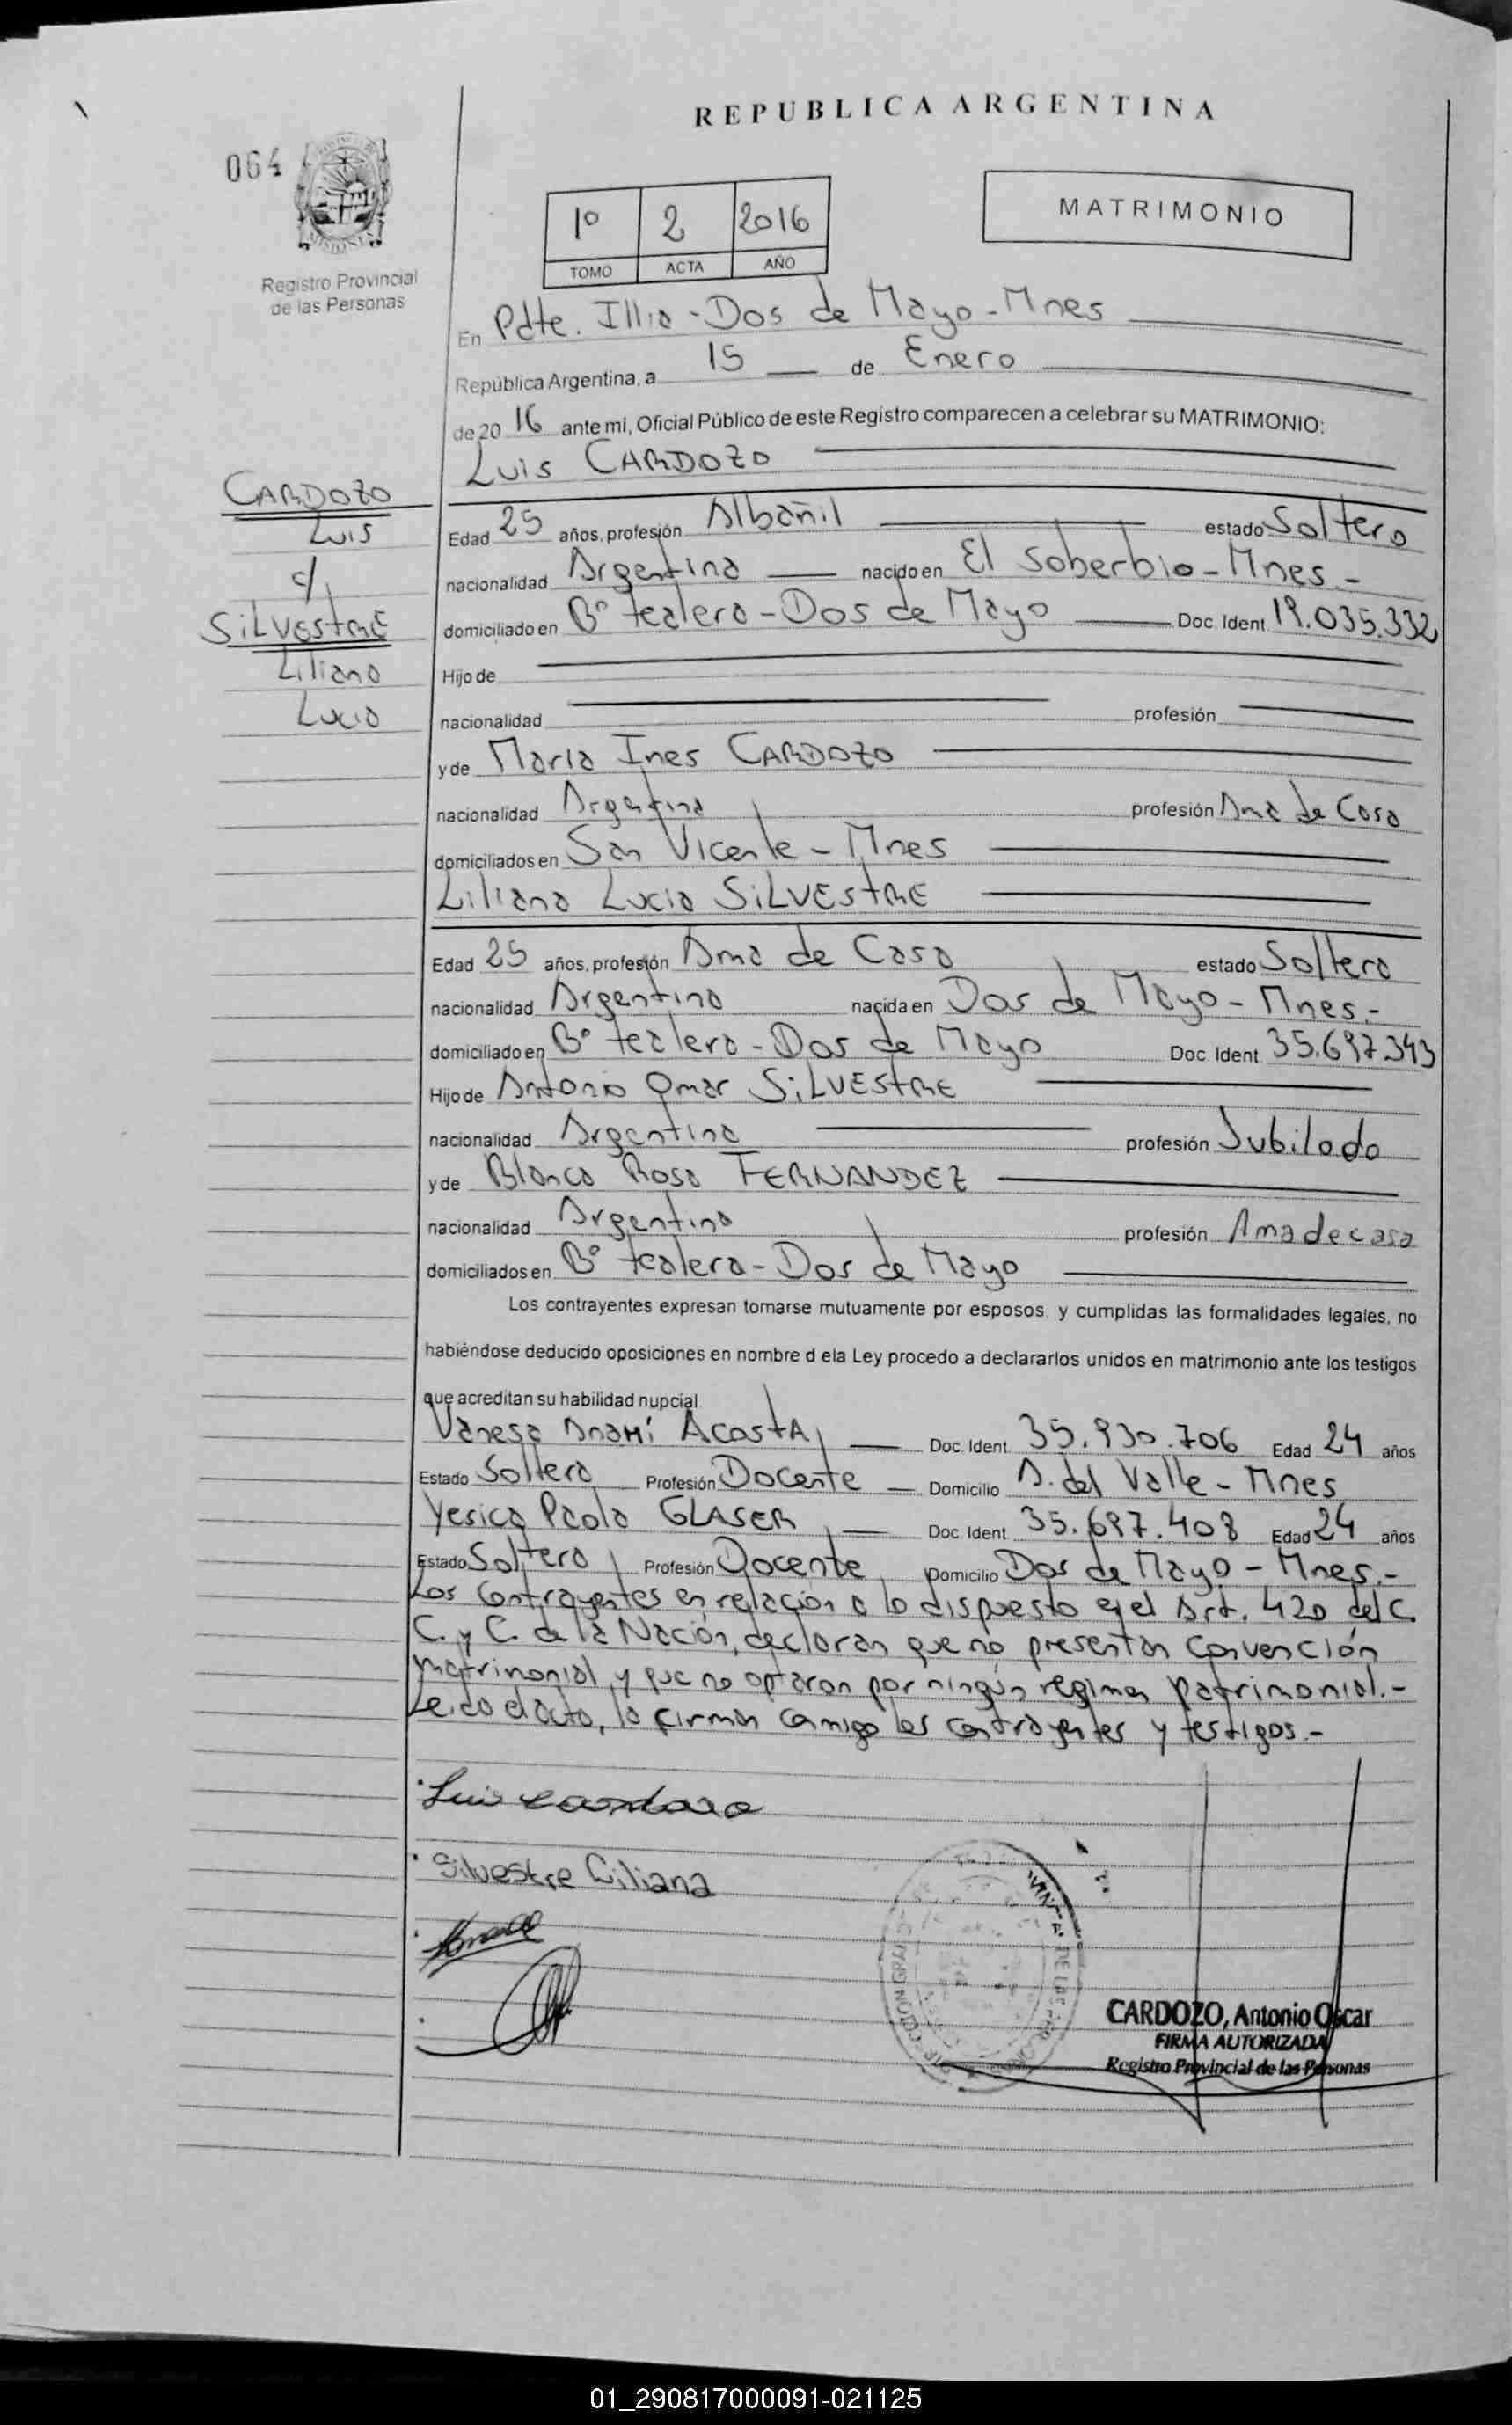 REPUBLICA ARGENTINA
064
MISIONES
Registro Provincial
de las Personas
1º 2 2016
TOMO ACTA AÑO
MATRIMONIO
En Pdte. Illia - Dos de Mayo - Mnes
República Argentina, a 15 de Enero
de 20 16 ante mi, Oficial Público de este Registro comparecen a celebrar su MATRIMONIO:
Luis CARDOZO
CARDOZO
Luis
c/
SiLVEStRE
Liliana
Lucia
Edad 25 años, profesión Albañil estado Soltero
nacionalidad Argentina nacido en El Soberbio - Mnes -
domiciliado en Bº tealera - Dos de Mayo Doc. Ident. 19.035.332
Hijo de
nacionalidad profesión
y de Maria Ines CARDOZO
nacionalidad Argentina profesión Ama de Casa
domiciliados en San Vicente - Mnes
Liliana Lucia SiLVEStRE
Edad 25 años, profesión Ama de Casa estado Soltera
nacionalidad Argentina nacida en Dos de Mayo - Mnes.-
domiciliado en Bº tealera - Dos de Mayo Doc. Ident. 35.697.343
Hijo de Antonio Omar SiLVEStRE
nacionalidad Argentina profesión Jubilado
y de Blanca Rosa FERNANDEZ
nacionalidad Argentina profesión Ama de casa
domiciliados en Bº tealera - Dos de Mayo
Los contrayentes expresan tomarse mutuamente por esposos, y cumplidas las formalidades legales, no
habiéndose deducido oposiciones en nombre d ela Ley procedo a declararlos unidos en matrimonio ante los testigos
que acreditan su habilidad nupcial.
Vanesa Anahí ACOSTA Doc. Ident. 35.930.706 Edad 24 años
Estado Soltera Profesión Docente Domicilio A. del Valle - Mnes
Yesica Paola GLASER Doc. Ident. 35.697.408 Edad 24 años
Estado Soltera Profesión Docente Domicilio Dos de Mayo - Mnes.-
Los contrayentes en relación a lo dispuesto e el Art. 420 del C.
C. y C. de la Nación, declaran que no presentan convención
matrimonial y que no optaron por ningún regimen patrimonial.-
Leido el acto, lo firman conmigo los contrayentes y testigos.-
Luis Cardozo
Silvestre Liliana
CARDOZO, Antonio Oscar
FIRMA AUTORIZADA
Registro Provincial de las Personas
01_290817000091-021125